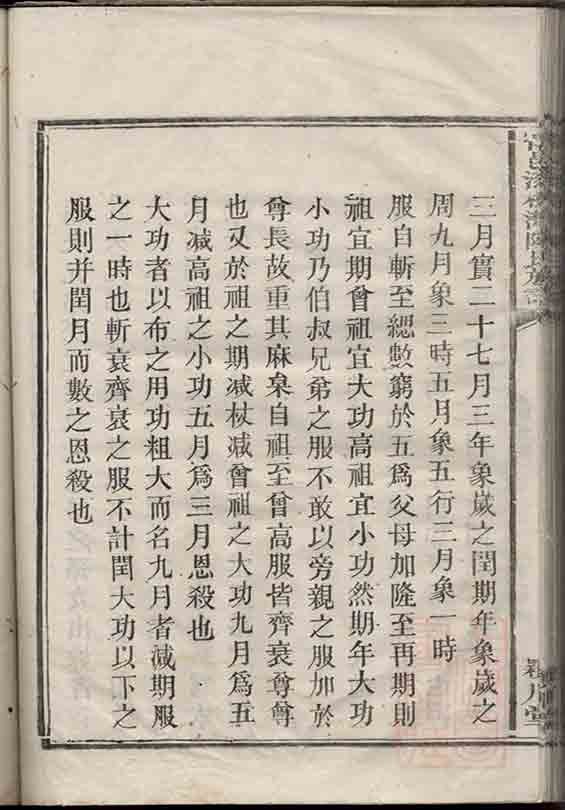 三月實二十七月三年象歲之閏期年象歲之
周九月象三時五月象五行三月象一時
服自斬至緦數窮於五爲父母加隆至再期則
祖宜期曾祖宜大功高祖宜小功然期年大功
小功乃伯叔兄弟之服不敢以旁親之服加於
尊長故重其麻枲自祖至曾高服皆齊衰尊尊
也又於祖之期减杖减曾祖之大功九月爲五
月减高祖之小功五月爲三月恩殺也
大功者以布之用功粗大而名九月者减期服
之一時也斬衰齊衰之服不計閏大功以下之
服則并閏月而數之恩殺也